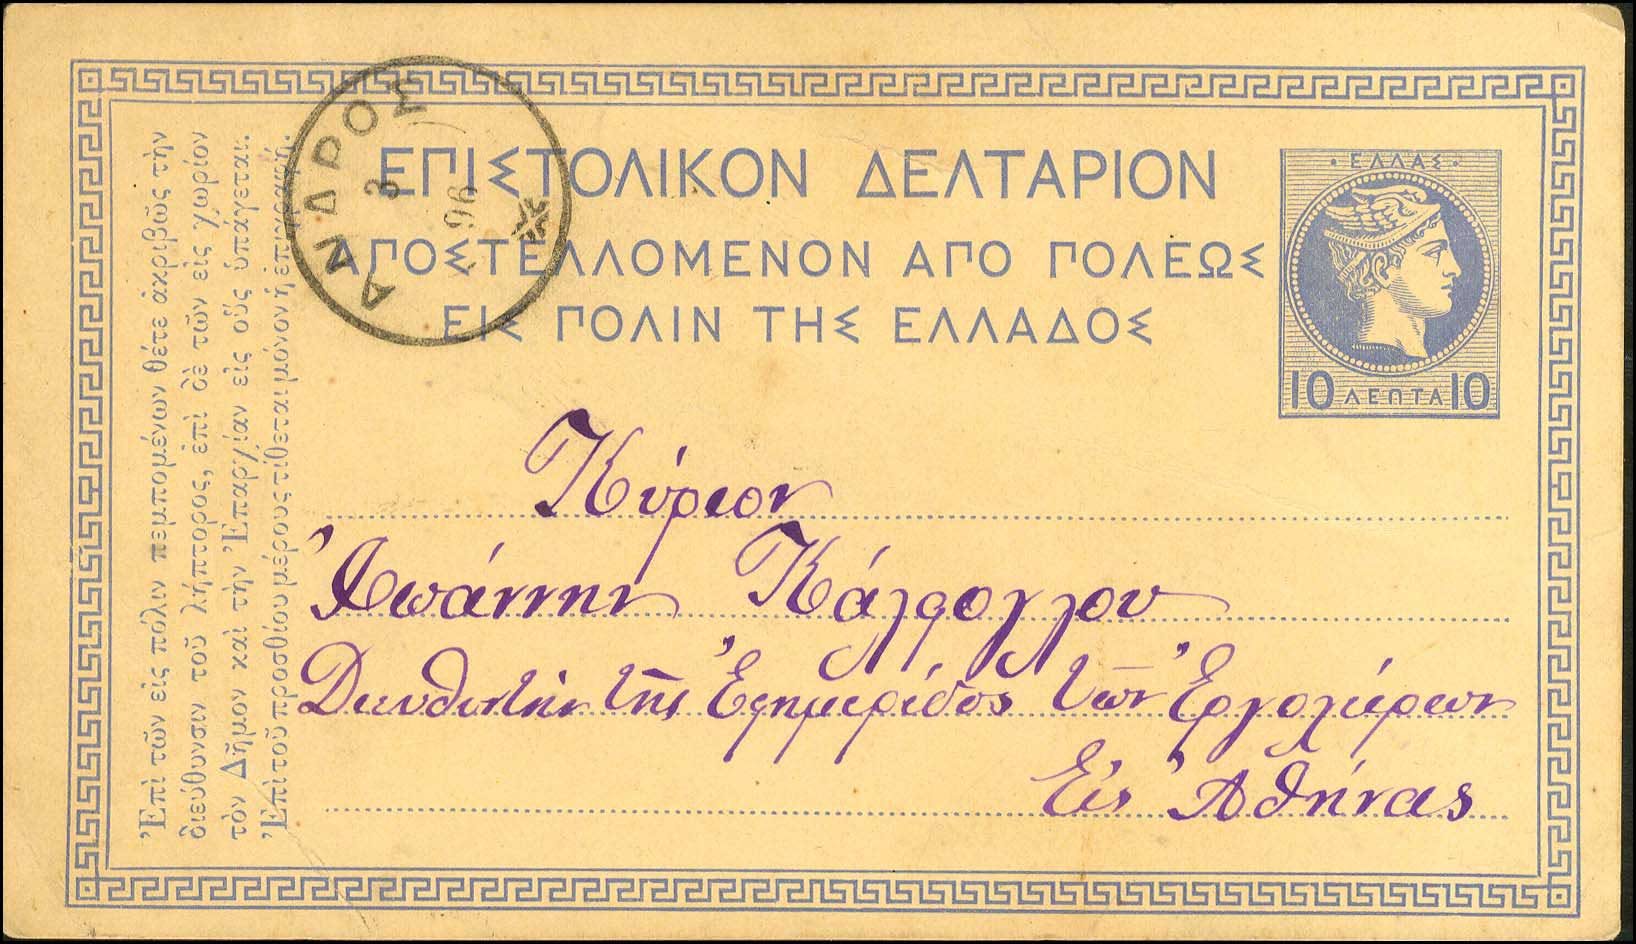 ΕΠΙΣΤΟΛΙΚΟΝ ΔΕΛΤΑΡΙΟΝ
ΑΠΟΣΤΕΛΛΟΜΕΝΟΝ ΑΠΟ ΠΟΛΕΩΣ
ΕΙΣ ΠΟΛΙΝ ΤΗΣ ΕΛΛΑΔΟΣ
ΑΝΔΡΟΣ
3
96
· ΕΛΛΑΣ ·
10 ΛΕΠΤΑ 10
Κύριον
Ἰωάννην Κάλφογλου
Διευθυντὴν τῆς Ἐφημερίδος τῶν Ἐργολάβων
Εἰς Ἀθήνας
Ἐπὶ τῶν εἰς πόλιν πεμπομένων θέτε ἀκριβῶς τὴν
διεύθυνσιν τοῦ λήπτορος, ἐπὶ δὲ τῶν εἰς χωρίον
τὸν Δῆμον καὶ τὴν Ἐπαρχίαν εἰς οὓς ὑπάγεται.
Ἐπὶ τοῦ προσθίου μέρους τίθεται μόνον ἡ ἐπιγραφή.